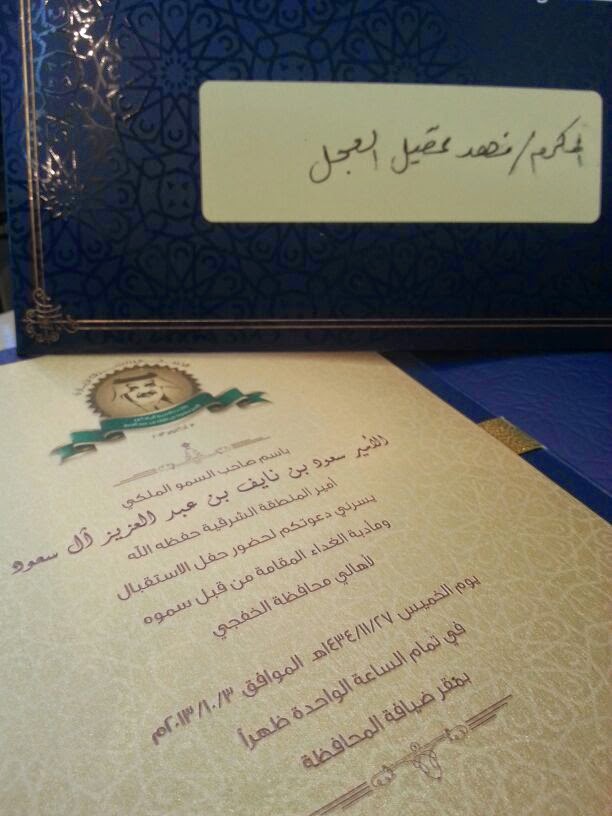 المكرم/ فهد عقيل العجل
باسم صاحب السمو الملكي
الأمير سعود بن نايف بن عبد العزيز آل سعود
أمير المنطقة الشرقية حفظه الله
يسرني دعوتكم لحضور حفل الاستقبال
ومأدبة الغداء المقامة من قبل سموه
لأهالي محافظة الخفجي
يوم الخميس ١٤٣٤/١١/٢٧هـ الموافق ٢٠١٣/١٠/٣م
في تمام الساعة الواحدة ظهراً
بمقر ضيافة المحافظة